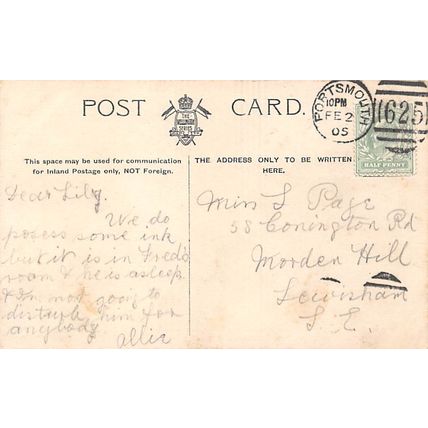 POST CARD.
THE WRENCH SERIES
PORTSMOUTH
10PM
FE 2
05
625
HALF PENNY
This space may be used for communication
for Inland Postage only, NOT Foreign.
THE ADDRESS ONLY TO BE WRITTEN
HERE.
Dear Lily.
We do
posess some ink
but it is in Fred's
room & he is asleep
& I'm not going to
disturb him for
anybody
Allie
Miss L Page
58 Conington Rd
Morden Hill
Lewisham
S.E.